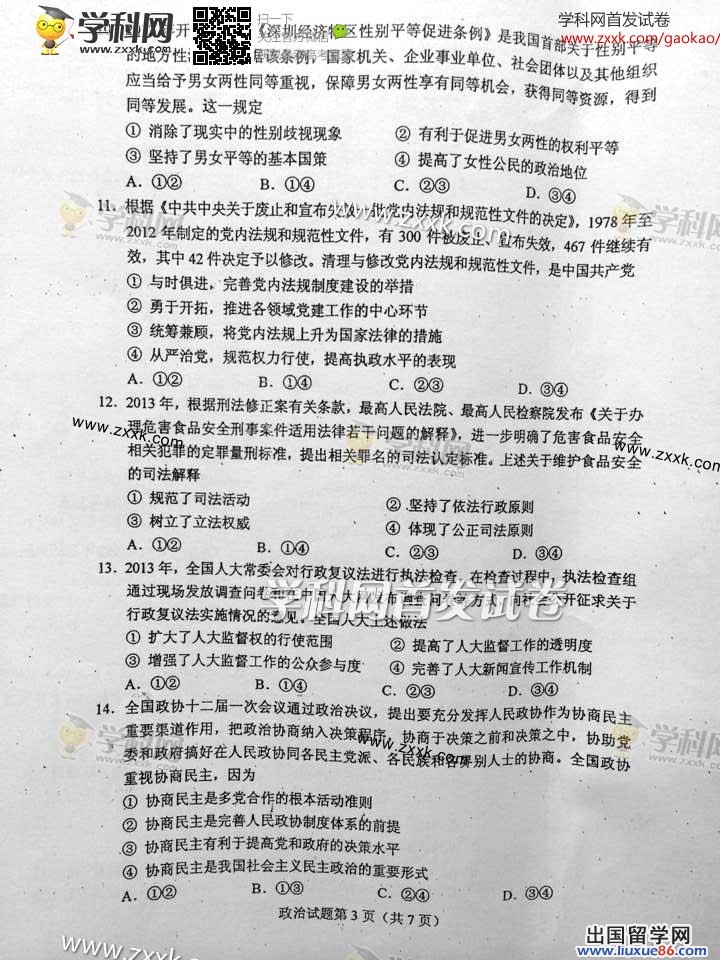 学科网 扫一下 学科网首发试卷
WWW.ZXXK.COM www.zxxk.com/gaokao/
《深圳经济特区性别平等促进条例》是我国首部关于性别平等
的地方性 该条例，国家机关、企业事业单位、社会团体以及其他组织
应当给予男女两性同等重视，保障男女两性享有同等机会，获得同等资源，得到
同等发展。这一规定
① 消除了现实中的性别歧视现象 ② 有利于促进男女两性的权利平等
③ 坚持了男女平等的基本国策 ④ 提高了女性公民的政治地位
A．①② B．①④ C．②③ D．③④
11．根据《中共中央关于废止和宣布失效一批党内法规和规范性文件的决定》，1978 年至
2012 年制定的党内法规和规范性文件，有 300 件被废止、宣布失效，467 件继续有
效，其中 42 件决定予以修改。清理与修改党内法规和规范性文件，是中国共产党
① 与时俱进，完善党内法规制度建设的举措
② 勇于开拓，推进各领域党建工作的中心环节
③ 统筹兼顾，将党内法规上升为国家法律的措施
④ 从严治党，规范权力行使，提高执政水平的表现
A．①② B．①④ C．②③ D．③④
12．2013 年，根据刑法修正案有关条款，最高人民法院、最高人民检察院发布《关于办
理危害食品安全刑事案件适用法律若干问题的解释》，进一步明确了危害食品安全
相关犯罪的定罪量刑标准，提出相关罪名的司法认定标准。上述关于维护食品安全
的司法解释
① 规范了司法活动 ② 坚持了依法行政原则
③ 树立了立法权威 ④ 体现了公正司法原则
A．①② B．①④ C．②③ D．③④
13．2013 年，全国人大常委会对行政复议法进行执法检查，在检查过程中，执法检查组
通过现场发放调查问卷和在中国人大网 方式，向社会公开征求关于
行政复议法实施情况的意见。全国人大上述做法
① 扩大了人大监督权的行使范围 ② 提高了人大监督工作的透明度
③ 增强了人大监督工作的公众参与度 ④ 完善了人大新闻宣传工作机制
A．①② B．①④ C．②③ D．③④
14．全国政协十二届一次会议通过政治决议，提出要充分发挥人民政协作为协商民主
重要渠道作用，把政治协商纳入决策程序，协商于决策之前和决策之中，协助党
委和政府搞好在人民政协同各民主党派、各民族和各界别人士的协商。全国政协
重视协商民主，因为
① 协商民主是多党合作的根本活动准则
② 协商民主是完善人民政协制度体系的前提
③ 协商民主有利于提高党和政府的决策水平
④ 协商民主是我国社会主义民主政治的重要形式
A．①② B．①③ C．②④ D．③④
政治试题第 3 页（共 7 页）
出国留学网
www.liuxue86.com